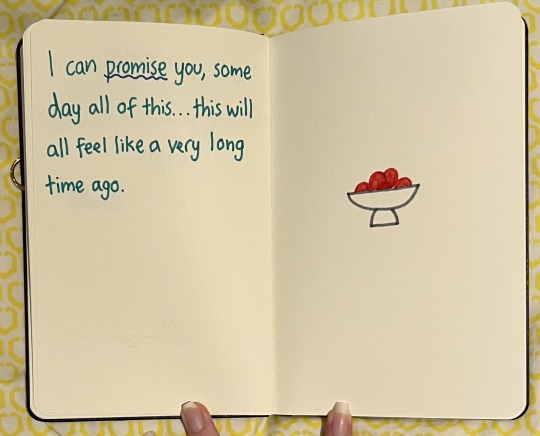 I can promise you, some
day all of this...this will
all feel like a very long
time ago.